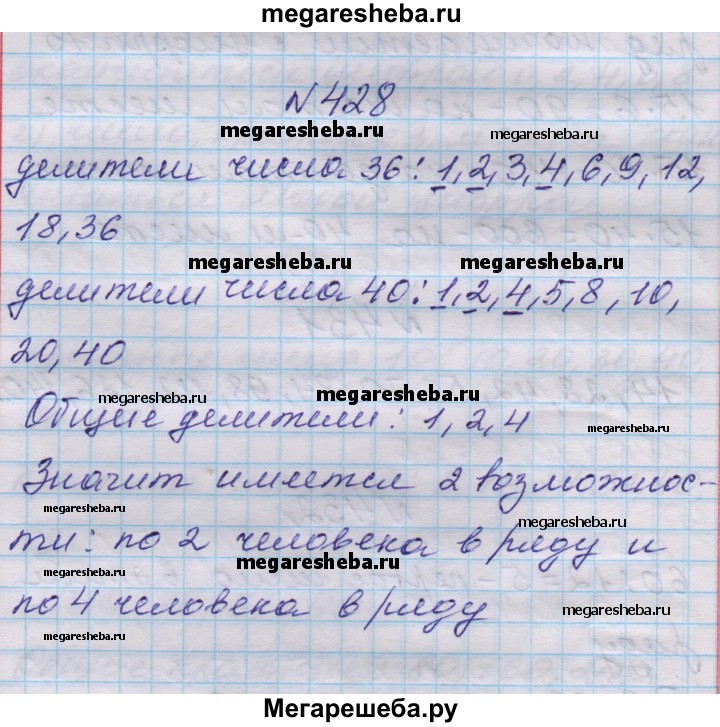 megaresheba.ru
N 428
megaresheba.ru
megaresheba.ru
делители числа 36: 1, 2, 3, 4, 6, 9, 12,
18, 36
megaresheba.ru
megaresheba.ru
делители числа 40: 1, 2, 4, 5, 8, 10,
20, 40
megaresheba.ru
megaresheba.ru
Общие делители: 1, 2, 4
megaresheba.ru
Значит имеется 2 возможнос-
megaresheba.ru
megaresheba.ru
ти: по 2 человека в ряду и
megaresheba.ru
megaresheba.ru
megaresheba.ru
по 4 человека в ряду
megaresheba.ru
megaresheba.ru
Мегарешеба.ру